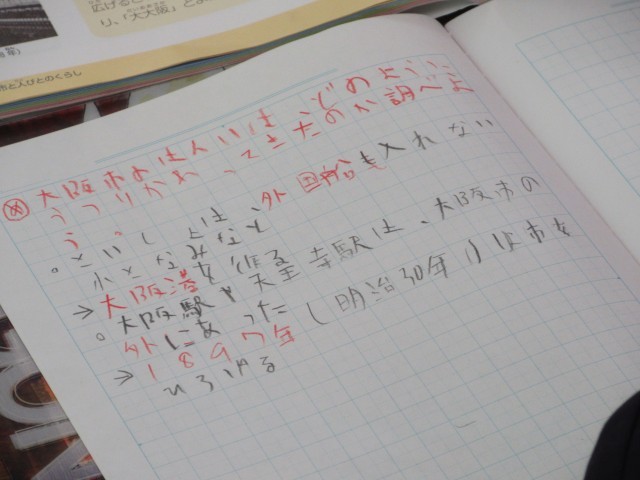 広げると
り、「大大阪」とよ
市と人びとのくらし
め 大阪市のはんいは どのように
うつりかわってきたのか調べよ
う。
外国船も入れない
小さなみなと
→大阪港を作る
。大阪駅や天王寺駅は、大阪市の
外にあった
→1897年(明治30年)に市を
ひろげる